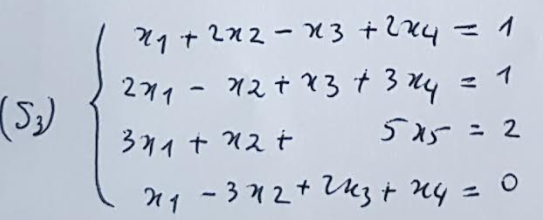 x1 + 2x2 - x3 + 2x4 = 1
2x1 - x2 + x3 + 3x4 = 1
(S3)
3x1 + x2 + 5x5 = 2
x1 - 3x2 + 2x3 + x4 = 0